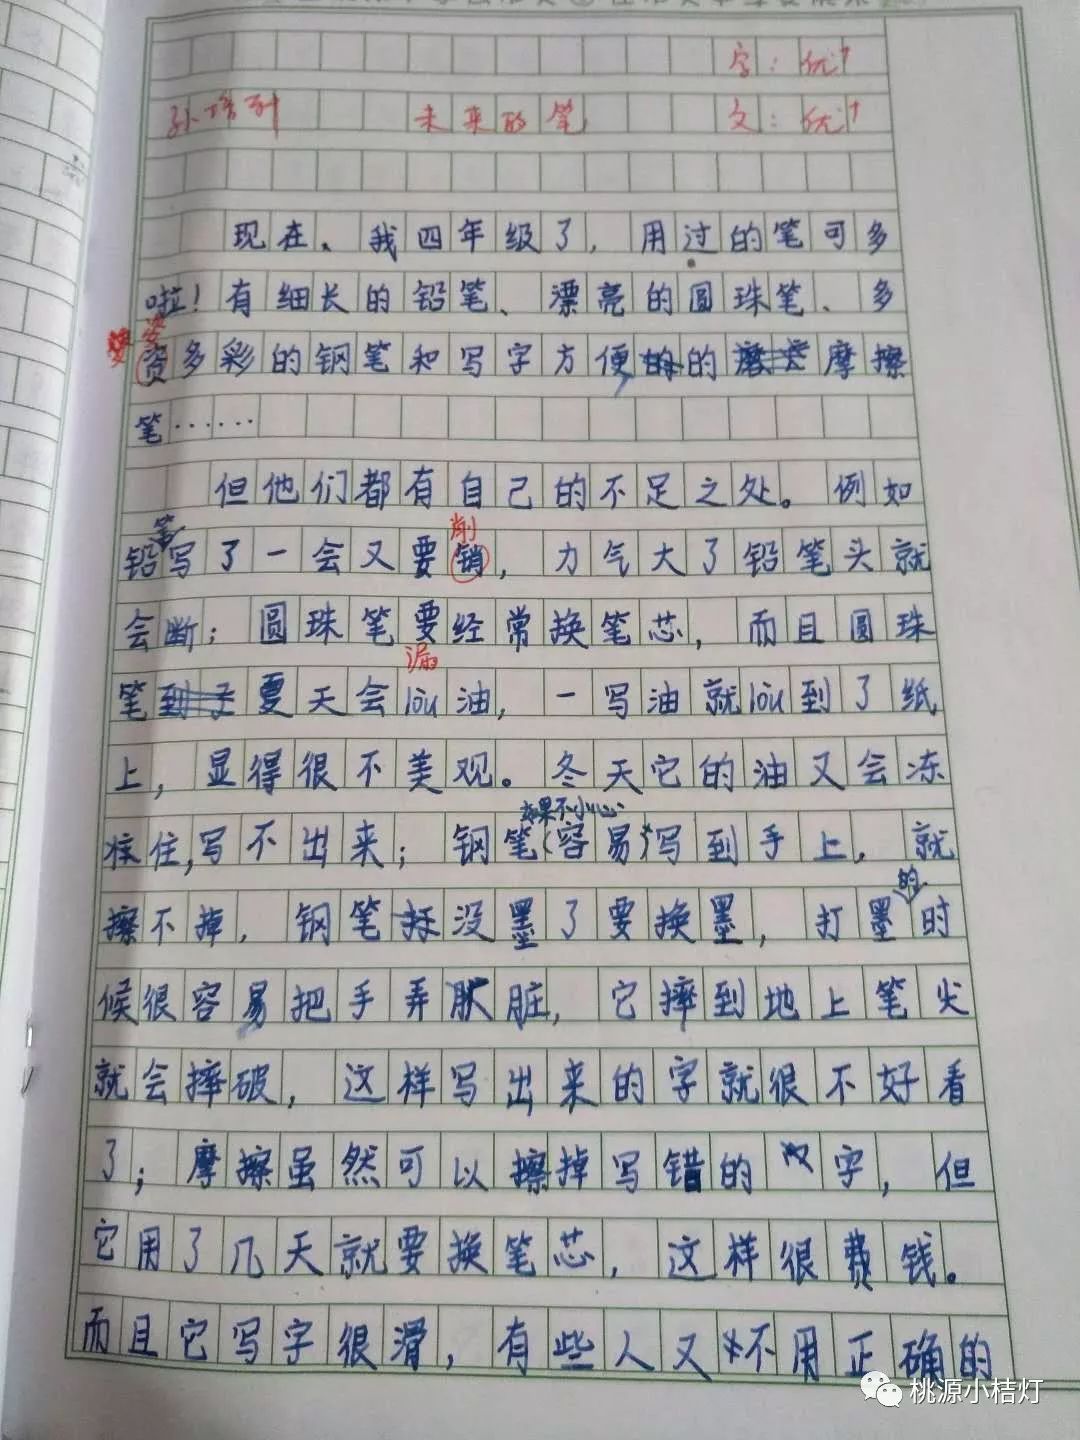 字：优↑
孙 未来的笔 文：优↑
现在、我四年级了，用过的笔可多
啦！有细长的铅笔、漂亮的圆珠笔、多
姿
资多彩的钢笔和写字方便的摩擦
笔……
但他们都有自己的不足之处。例如
笔 削
铅写了一会又要销，力气大了铅笔头就
会断；圆珠笔要经常换笔芯，而且圆珠
漏
笔夏天会lòu油，一写油就lòu到了纸
上，显得很不美观。冬天它的油又会冻
如果不小心
住，写不出来；钢笔（容易）写到手上，就
的
擦不掉，钢笔没墨了要换墨，打墨时
候很容易把手弄脏，它摔到地上笔尖
就会摔破，这样写出来的字就很不好看
了；摩擦虽然可以擦掉写错的汉字，但
它用了几天就要换笔芯，这样很费钱。
而且它写字很滑，有些人又不用正确的
桃源小桔灯